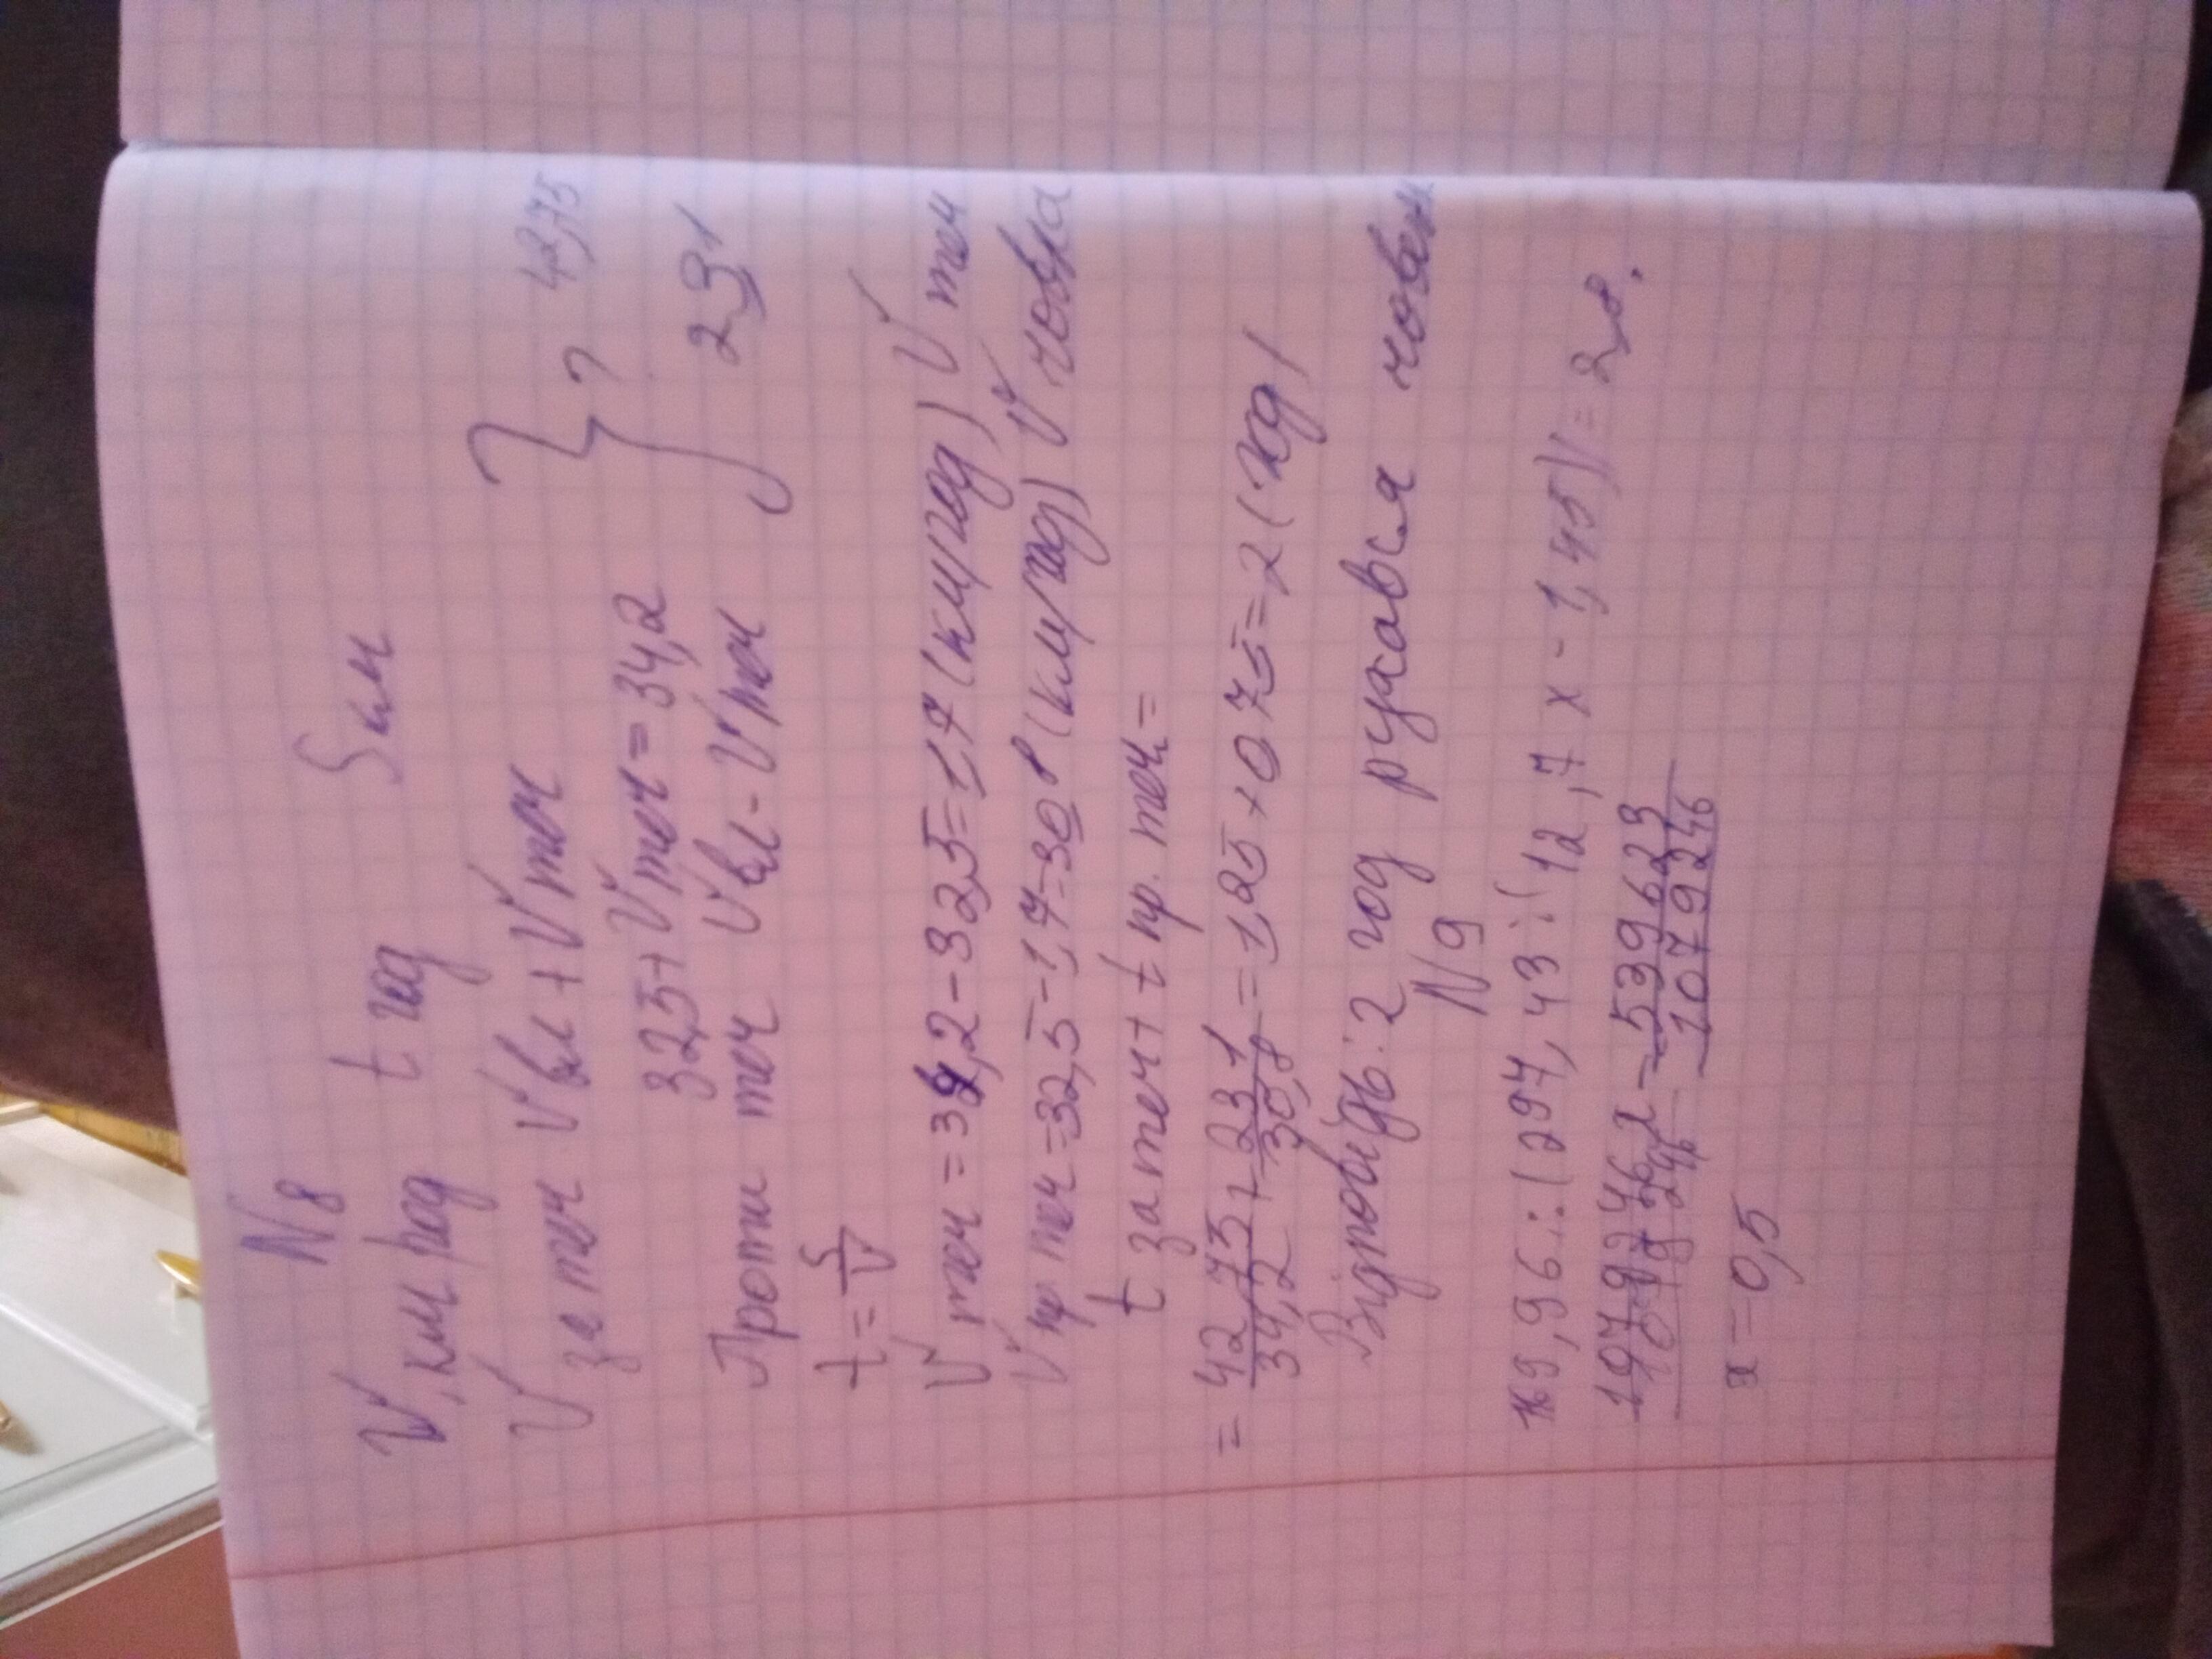 N 8
V, км/год t год S км
V за теч Vвл + Vтеч } ? 42,75
32,5 + Vтеч = 34,2
Проти теч Vвл - Vтеч } 23,1
t = S/V
V теч = 34,2 - 32,5 = 1,7 (км/год) V теч
V пр теч = 32,5 - 1,7 = 30,8 (км/год) V човна
t за теч + t пр. теч =
= 42,75/34,2 + 23,1/30,8 = 1,25 + 0,75 = 2 (год)
Відповідь: 2 год рухався човен
N 9
169,96 : (297,43 : (12,7x - 1,45)) = 28.
1079246x = 539623
x = 0,5